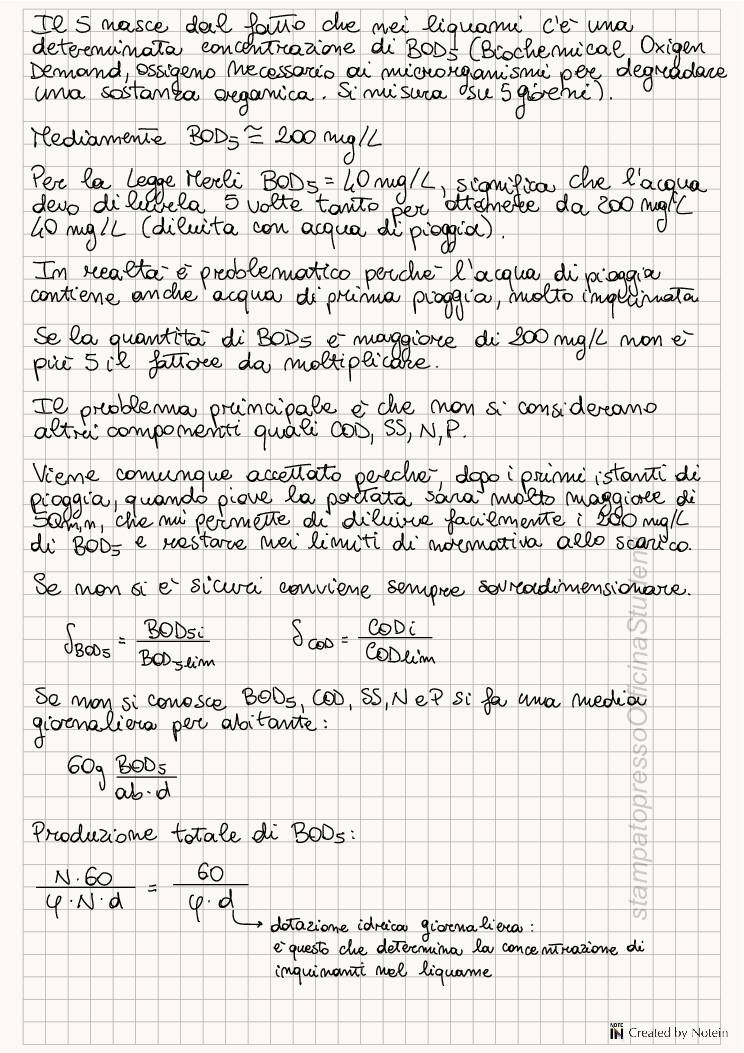 Il 5 nasce dal fatto che nei liquami c'è una
determinata concentrazione di BOD5 (Biochemical Oxigen
Demand, ossigeno necessario ai microrganismi per degradare
una sostanza organica. Si misura su 5 giorni).
Mediamente BOD5 ≅ 200 mg/L
Per la Legge Merli BOD5 = 40 mg/L, significa che l'acqua
devo diluirla 5 volte tanto per ottenere da 200 mg/L
40 mg/L (diluita con acqua di pioggia).
In realtà è problematico perchè l'acqua di pioggia
contiene anche acqua di prima pioggia, molto inquinata
Se la quantità di BOD5 è maggiore di 200 mg/L non è
più 5 il fattore da moltiplicare.
Il problema principale è che non si considerano
altri componenti quali COD, SS, N, P.
Viene comunque accettato perchè, dopo i primi istanti di
pioggia, quando piove la portata sarà molto maggiore di
5Qm,n, che mi permette di diluire facilmente i 200 mg/L
di BOD5 e restare nei limiti di normativa allo scarico.
Se non si è sicuri conviene sempre sovradimensionare.
δBOD5 = BOD5i / BOD5lim δCOD = CODi / CODlim
Se non si conosce BOD5, COD, SS, N e P si fa una media
giornaliera per abitante:
60g BOD5 / ab·d
Produzione totale di BOD5:
N·60 / φ·N·d = 60 / φ·d
→ dotazione idrica giornaliera:
è questo che determina la concentrazione di
inquinanti nel liquame
stampatopressoOfficinaStudenti
NOTE IN Created by Notein